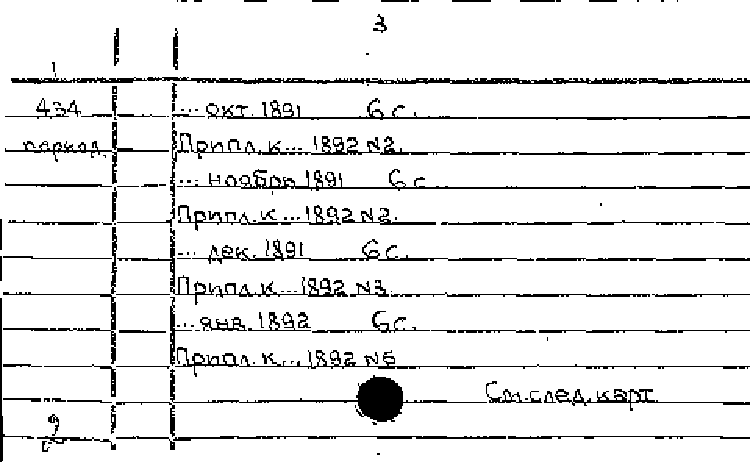 3
434 ... окт. 1891 6 с.
период. Припл. к ... 1892 № 2.
... ноября 1891 6 с
Припл. к ... 1892 № 2.
... дек. 1891 6 с.
Припл. к ... 1892 № 3
... янв. 1892 6 с.
Припл. к ... 1892 № 5
См. след. карт